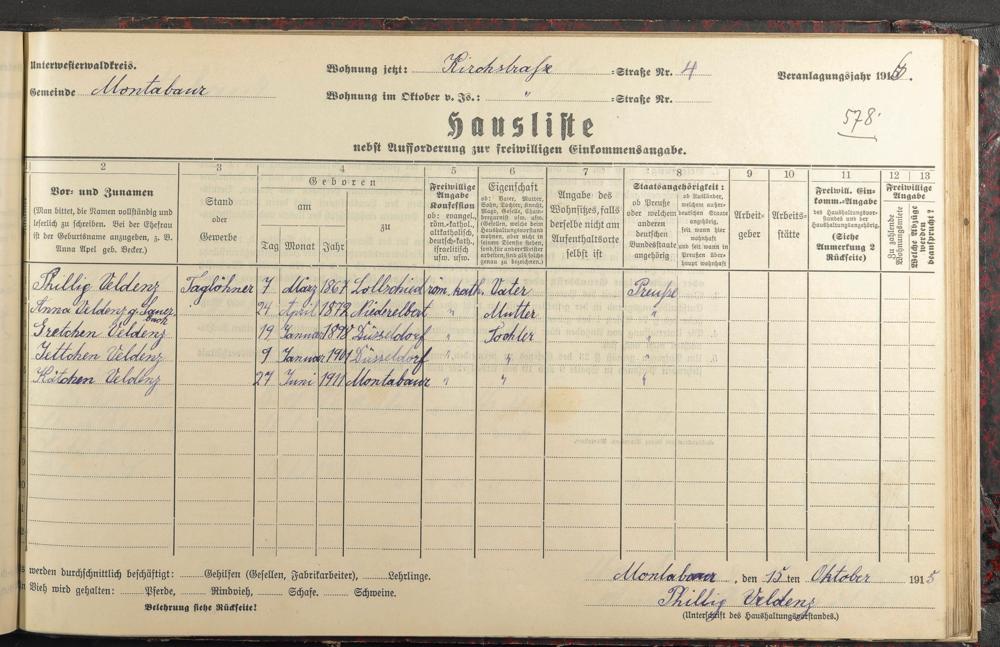 Unterwesterwaldkreis.
Gemeinde Montabaur
Wohnung jetzt: Kirchstraße =Straße Nr. 4
Wohnung im Oktober v. Js.: " =Straße Nr.
Veranlagungsjahr 1916.
578.
Hausliste
nebst Aufforderung zur freiwilligen Einkommensangabe.
2 3 4 5 6 7 8 9 10 11 12 13
Vor- und Zunamen
(Man bittet, die Namen vollständig und
leserlich zu schreiben. Bei der Ehefrau
ist der Geburtsname anzugeben, z. B.
Anna Apel geb. Becker.)
Stand
oder
Gewerbe
Geboren
am
zu
Tag Monat Jahr
Freiwillige
Angabe
Konfession
ob: evangel.,
röm.-kathol.,
altkatholisch,
deutsch-kath.,
israelitisch
usw. usw.
Eigenschaft
ob: Vater, Mutter,
Sohn, Tochter, Knecht,
Magd, Geselle, Cham-
bregarnist usw. usw.
Angabe des
Wohnsitzes, falls
derselbe nicht am
Aufenthaltsorte
selbst ist
Staatsangehörigkeit:
ob Preuße
oder welchem
anderen
deutschen
Bundesstaate
angehörig
ob Ausländer,
welchem außer-
deutschen Staate
angehörig,
seit wann hier
wohnhaft
und seit wann in
Preußen über-
haupt wohnhaft
Arbeit-
geber
Arbeits-
stätte
Freiwill. Ein-
komm.-Angabe
des Haushaltungsvor-
standes und der
Haushaltungsangehörig.
(Siehe
Anmerkung 2
Rückseite)
Freiwillige
Angabe
Zu zahlende
Wohnungsmiete
Welche Abzüge
werden
beansprucht?
Phillig Veldenz Taglöhner 7 März 1867 Lollschied röm. kath. Vater Preuße
Anna Veldenz g. Lauer 24 April 1872 Niederelbert " Mutter "
bach
Gretchen Veldenz 19 Januar 1898 Düsseldorf " Tochter "
Jettchen Veldenz 9 Januar 1901 Düsseldorf " " "
Kätchen Veldenz 27 Juni 1911 Montabaur " " "
werden durchschnittlich beschäftigt: Gehilfen (Gesellen, Fabrikarbeiter), Lehrlinge.
Vieh wird gehalten: Pferde, Rindvieh, Schafe. Schweine.
Belehrung siehe Rückseite!
Montabaur, den 15ten Oktober 1915
Phillig Veldenz
(Unterschrift des Haushaltungsvorstandes.)